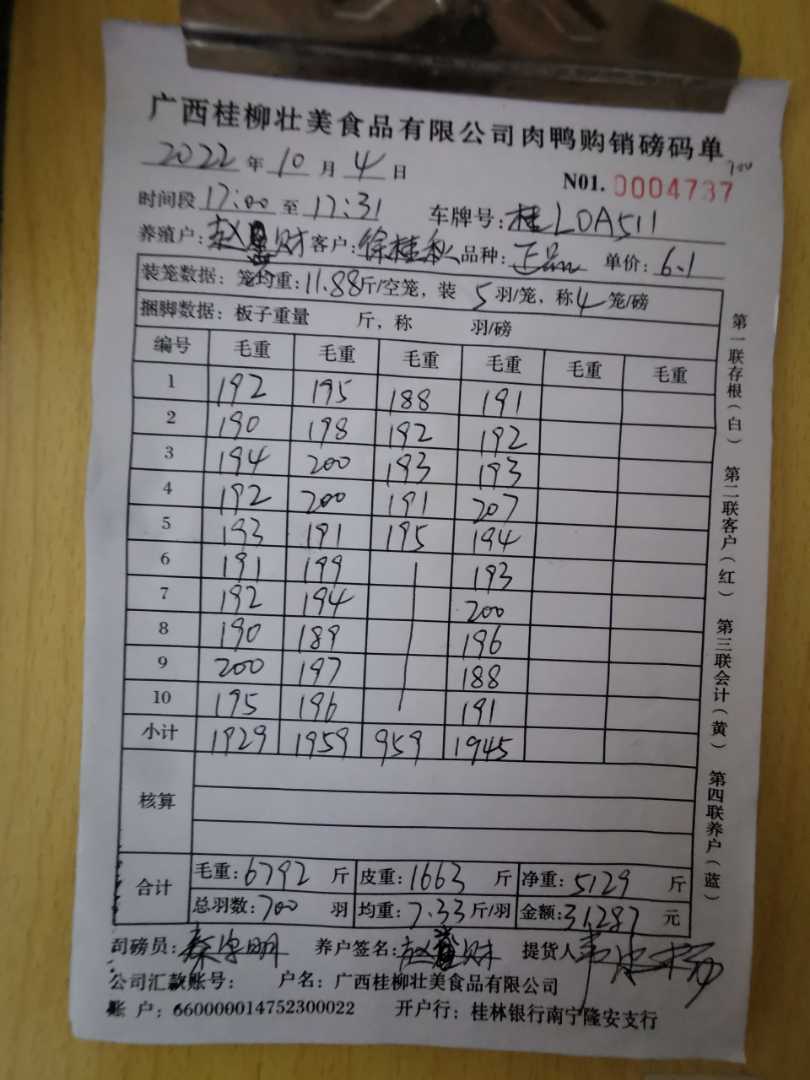 广西桂柳壮美食品有限公司肉鸭购销磅码单
2022 年 10 月 4 日 700
N01. 0004737
时间段 17:00 至 17:31 车牌号: 桂L0A511
养殖户: 赵 财 客户: 徐桂秋 品种: 正品 单价: 6.1
装笼数据: 笼均重: 11.88 斤/空笼, 装 5 羽/笼, 称 4 笼/磅
捆脚数据: 板子重量 斤, 称 羽/磅
编号 毛重 毛重 毛重 毛重 毛重 毛重
1 192 195 188 191
2 190 198 192 192
3 194 200 193 193
4 192 200 191 207
5 193 191 195 194
6 191 199 193
7 192 194 200
8 190 189 196
9 200 197 188
10 195 196 191
小计 1929 1959 959 1945
核算
合计 毛重: 6792 斤 皮重: 1663 斤 净重: 5129 斤
总羽数: 700 羽 均重: 7.33 斤/羽 金额: 31287 元
司磅员: 养户签名: 赵 财 提货人
公司汇款账号: 户名: 广西桂柳壮美食品有限公司
账 户: 660000014752300022 开户行: 桂林银行南宁隆安支行
第一联存根(白) 第二联客户(红) 第三联会计(黄) 第四联养户(蓝)